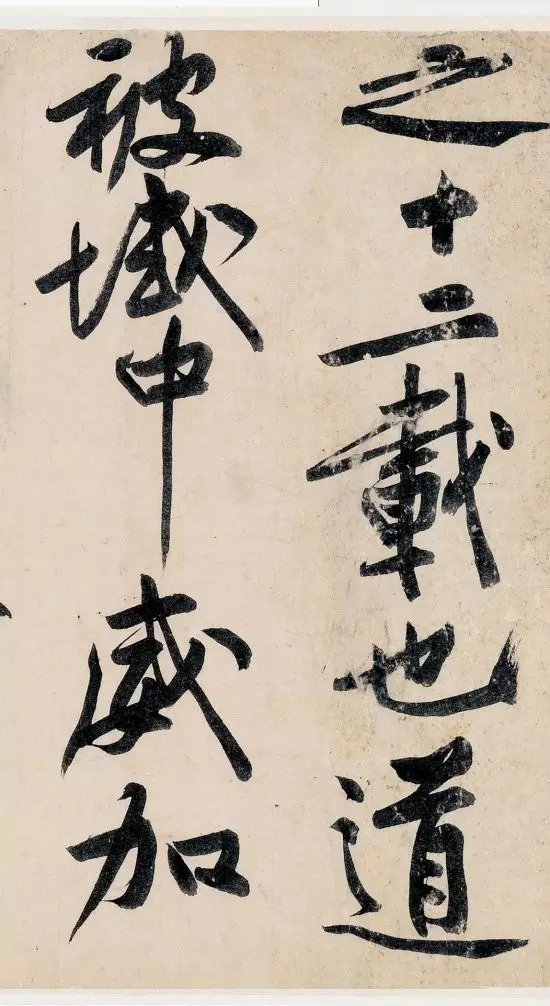 之十二載也道
被域中威加